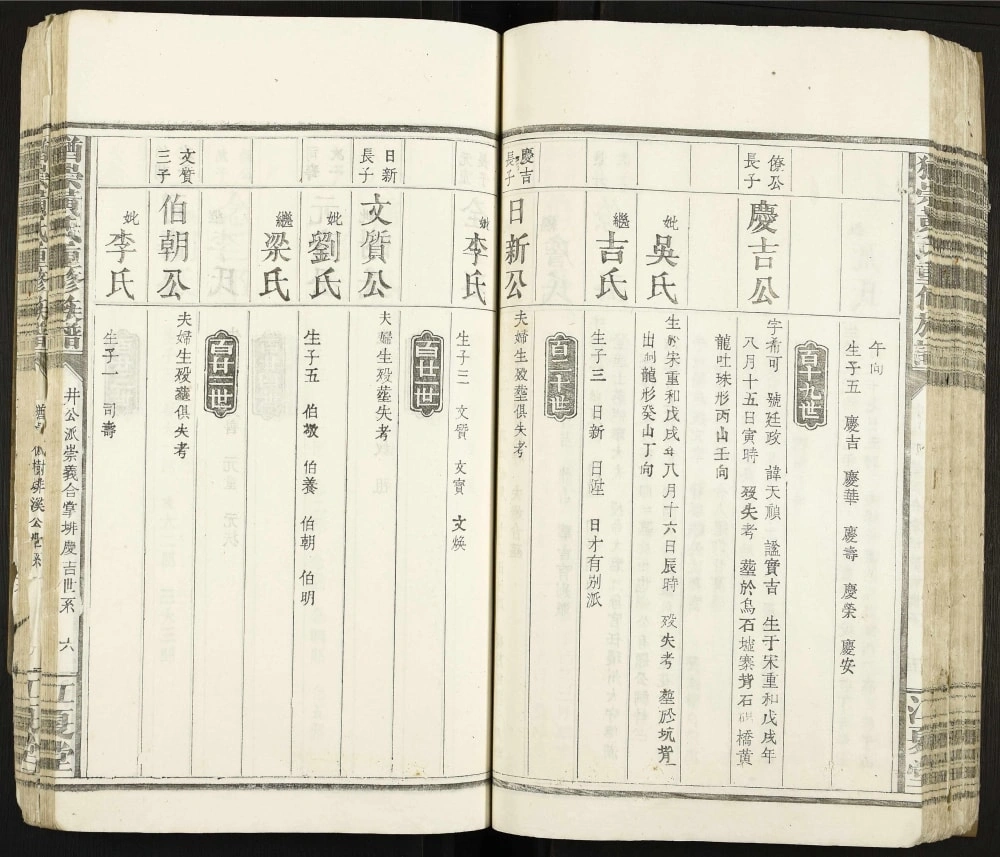 午向
生子五 慶吉 慶華 慶壽 慶榮 慶安
百十九世
僚公長子
慶吉公
字希可 號廷政 諱天順 謚實吉 生于宋重和戊戌年
八月十五日寅時 歿失考 塟於烏石墟寨背石 橋黄
龍吐珠形丙山壬向
妣吳氏
生於宋重和戊戌年八月十六日辰時 歿失考 塟於坑背
出洞龍形癸山丁向
繼吉氏
生子三 日新 日陞 日才有別派
百二十世
慶吉長子
日新公
夫婦生歿塟俱失考
妣李氏
生子三 文質 文實 文煥
百廿一世
日新長子
文質公
夫婦生歿塟失考
妣劉氏
生子五 伯敬 伯養 伯朝 伯明
繼梁氏
百廿二世
文質三子
伯朝公
夫婦生歿塟俱失考
妣李氏
生子一 司壽
黃氏重修族譜
井公派崇義合掌排慶吉世系
六
江夏堂